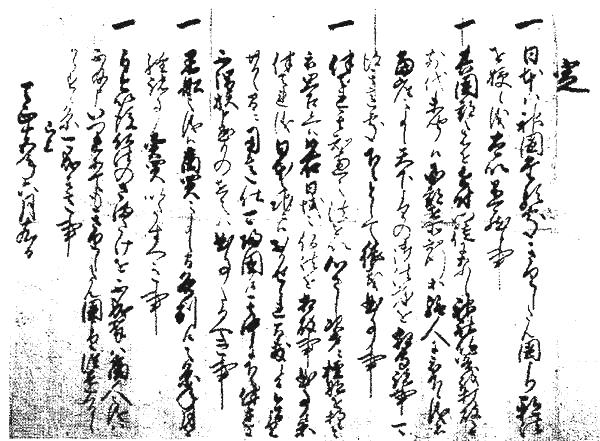 定
一 日本ハ神国たる処きりしたん国より邪法
を授候儀太以不可然候事
一 其国郡之者を近付門徒になし神社仏閣を打破之由
前代未聞候国郡在所知行等給人に被下候儀者
当座之事候天下よりの御法度を相守諸事
可得其意処下々として猥義曲事事
一 伴天連其知恵之法を以心さし次第に檀那を
持候と被思召候へハ如右日域之仏法を相破事曲事候条
伴天連儀日本之地ニハおかせられ間敷候間今日より廿日之
間に用意仕可帰国候其中に下々伴天連に
不謂族申懸もの在之ハ曲事たるへき事
一 黒船之儀ハ商買之事候間各別候之条年月を
経諸事売買いたすへき事
一 自今以後仏法のさまたけを不成輩ハ商人之儀は
不及申いつれにてもきりしたん国より往還くるし
からす候条可成其意事
已上
天正十五年六月十九日